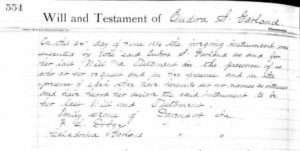 554
Will and Testament of Eudora S. Garland
On this 24" day of 1914 the forgoing instrument was
by the said Eudora S. Garland as and for
her last Will and Testament in the presence of us
who at her request and in her presence and in the
presence of each other have hereunto set our names as witnesses
and have heard her declare the said instrument to be
her last Will and Testament.
Emily Davenport Ia
F. L. Dodge " "
Garland " "